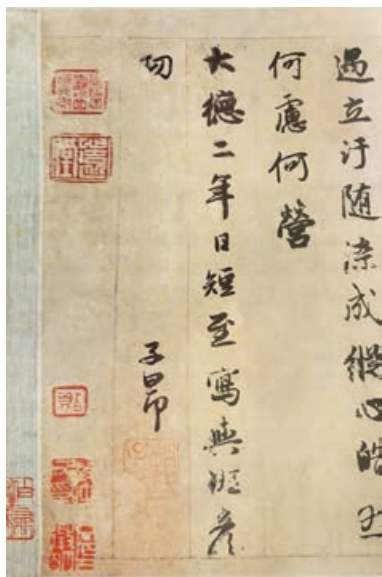 遇立汙随染成縱心皓然
何慮何營
大德二年日短至寫與班彦
功
子昂